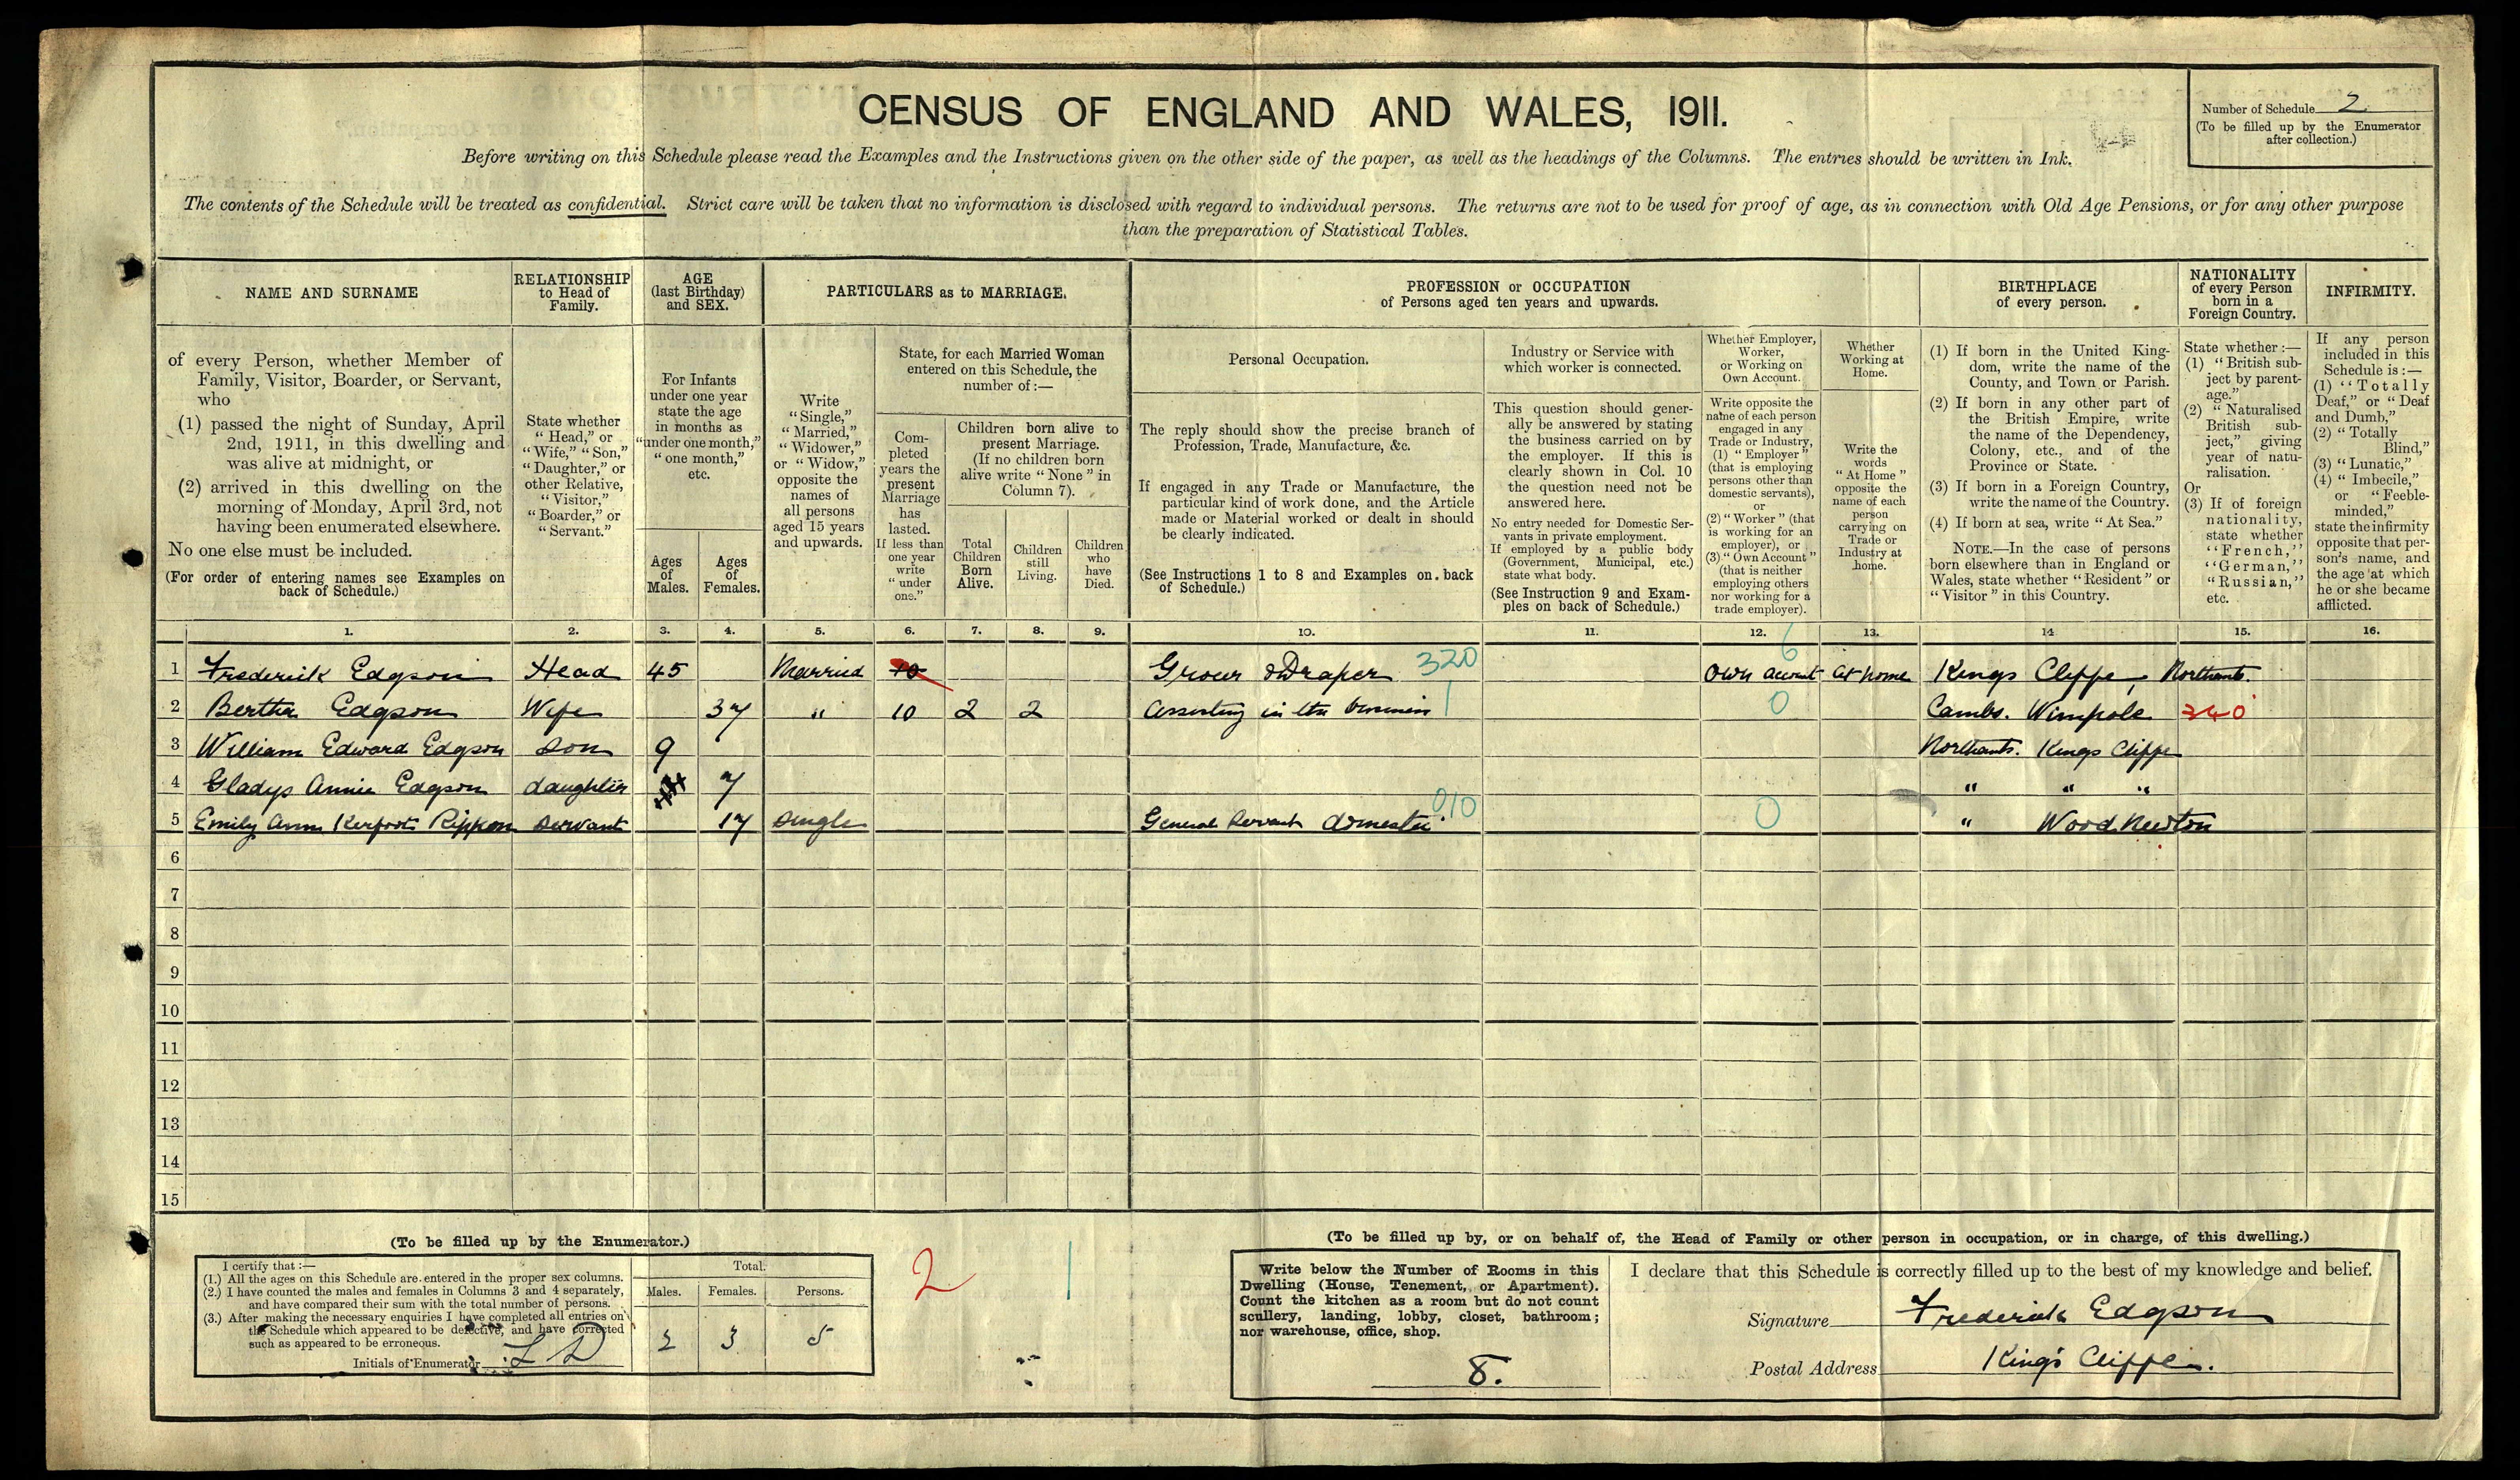 CENSUS OF ENGLAND AND WALES, 1911.
Number of Schedule 2
(To be filled up by the Enumerator
after collection.)
Before writing on this Schedule please read the Examples and the Instructions given on the other side of the paper, as well as the headings of the Columns. The entries should be written in Ink.
The contents of the Schedule will be treated as confidential. Strict care will be taken that no information is disclosed with regard to individual persons. The returns are not to be used for proof of age, as in connection with Old Age Pensions, or for any other purpose
than the preparation of Statistical Tables.
NAME AND SURNAME
RELATIONSHIP
to Head of
Family.
AGE
(last Birthday)
and SEX.
PARTICULARS as to MARRIAGE.
PROFESSION or OCCUPATION
of Persons aged ten years and upwards.
BIRTHPLACE
of every person.
NATIONALITY
of every Person
born in a
Foreign Country.
INFIRMITY.
of every Person, whether Member of
Family, Visitor, Boarder, or Servant,
who
(1) passed the night of Sunday, April
2nd, 1911, in this dwelling and
was alive at midnight, or
(2) arrived in this dwelling on the
morning of Monday, April 3rd, not
having been enumerated elsewhere.
No one else must be included.
(For order of entering names see Examples on
back of Schedule.)
State whether
"Head," or
"Wife," "Son,"
"Daughter," or
other Relative,
"Visitor,"
"Boarder," or
"Servant."
For Infants
under one year
state the age
in months as
"under one month,"
"one month,"
etc.
Ages
of
Males.
Ages
of
Females.
Write
"Single,"
"Married,"
"Widower,"
or "Widow,"
opposite the
names of
all persons
aged 15 years
and upwards.
State, for each Married Woman
entered on this Schedule, the
number of:—
Com-
pleted
years the
present
Marriage
has
lasted.
If less than
one year
write
"under
one."
Children born alive to
present Marriage.
(If no children born
alive write "None" in
Column 7).
Total
Children
Born
Alive.
Children
still
Living.
Children
who
have
Died.
Personal Occupation.
The reply should show the precise branch of
Profession, Trade, Manufacture, &c.
If engaged in any Trade or Manufacture, the
particular kind of work done, and the Article
made or Material worked or dealt in should
be clearly indicated.
(See Instructions 1 to 8 and Examples on back
of Schedule.)
Industry or Service with
which worker is connected.
This question should gener-
ally be answered by stating
the business carried on by
the employer. If this is
clearly shown in Col. 10
the question need not be
answered here.
No entry needed for Domestic Ser-
vants in private employment.
If employed by a public body
(Government, Municipal, etc.)
state what body.
(See Instruction 9 and Exam-
ples on back of Schedule.)
Whether Employer,
Worker,
or Working on
Own Account.
Write opposite the
name of each person
engaged in any
Trade or Industry,
(1) "Employer"
(that is employing
persons other than
domestic servants),
or
(2) "Worker" (that
is working for an
employer), or
(3) "Own Account"
(that is neither
employing others
nor working for a
trade employer).
Whether
Working at
Home.
Write the
words
"At Home"
opposite the
name of each
person
carrying on
Trade or
Industry at
home.
(1) If born in the United King-
dom, write the name of the
County, and Town or Parish.
(2) If born in any other part of
the British Empire, write
the name of the Dependency,
Colony, etc., and of the
Province or State.
(3) If born in a Foreign Country,
write the name of the Country.
(4) If born at sea, write "At Sea."
NOTE.—In the case of persons
born elsewhere than in England or
Wales, state whether "Resident" or
"Visitor" in this Country.
State whether:—
(1) "British sub-
ject by parent-
age."
(2) "Naturalised
British sub-
ject," giving
year of natu-
ralisation.
Or
(3) If of foreign
nationality,
state whether
"French,"
"German,"
"Russian,"
etc.
If any person
included in this
Schedule is:—
(1) "Totally
Deaf," or "Deaf
and Dumb,"
(2) "Totally
Blind,"
(3) "Lunatic,"
(4) "Imbecile,"
or "Feeble-
minded,"
state the infirmity
opposite that per-
son's name, and
the age at which
he or she became
afflicted.
1. 2. 3. 4. 5. 6. 7. 8. 9. 10. 11. 12. 13. 14 15. 16.
1 Frederick Edgson Head 45 Married 10 Grocer & Draper 320 6 Own account At home Kings Cliffe, Northants.
2 Bertha Edgson Wife 37 " 10 2 2 Assisting in the business 1 0 Cambs. Wimpole 340
3 William Edward Edgson Son 9 Northants. Kings Cliffe
4 Gladys Annie Edgson daughter 7 " " "
5 Emily Ann Kerfoot Rippon Servant 17 Single General Servant domestic 010 0 " Wood Newton
6
7
8
9
10
11
12
13
14
15
(To be filled up by the Enumerator.)
I certify that:—
(1.) All the ages on this Schedule are entered in the proper sex columns.
(2.) I have counted the males and females in Columns 3 and 4 separately,
and have compared their sum with the total number of persons.
(3.) After making the necessary enquiries I have completed all entries on
the Schedule which appeared to be defective, and have corrected
such as appeared to be erroneous.
Initials of Enumerator LD
Total.
Males. Females. Persons.
2 3 5
2 1
(To be filled up by, or on behalf of, the Head of Family or other person in occupation, or in charge, of this dwelling.)
Write below the Number of Rooms in this
Dwelling (House, Tenement, or Apartment).
Count the kitchen as a room but do not count
scullery, landing, lobby, closet, bathroom;
nor warehouse, office, shop.
8.
I declare that this Schedule is correctly filled up to the best of my knowledge and belief.
Signature Frederick Edgson
Postal Address King's Cliffe.